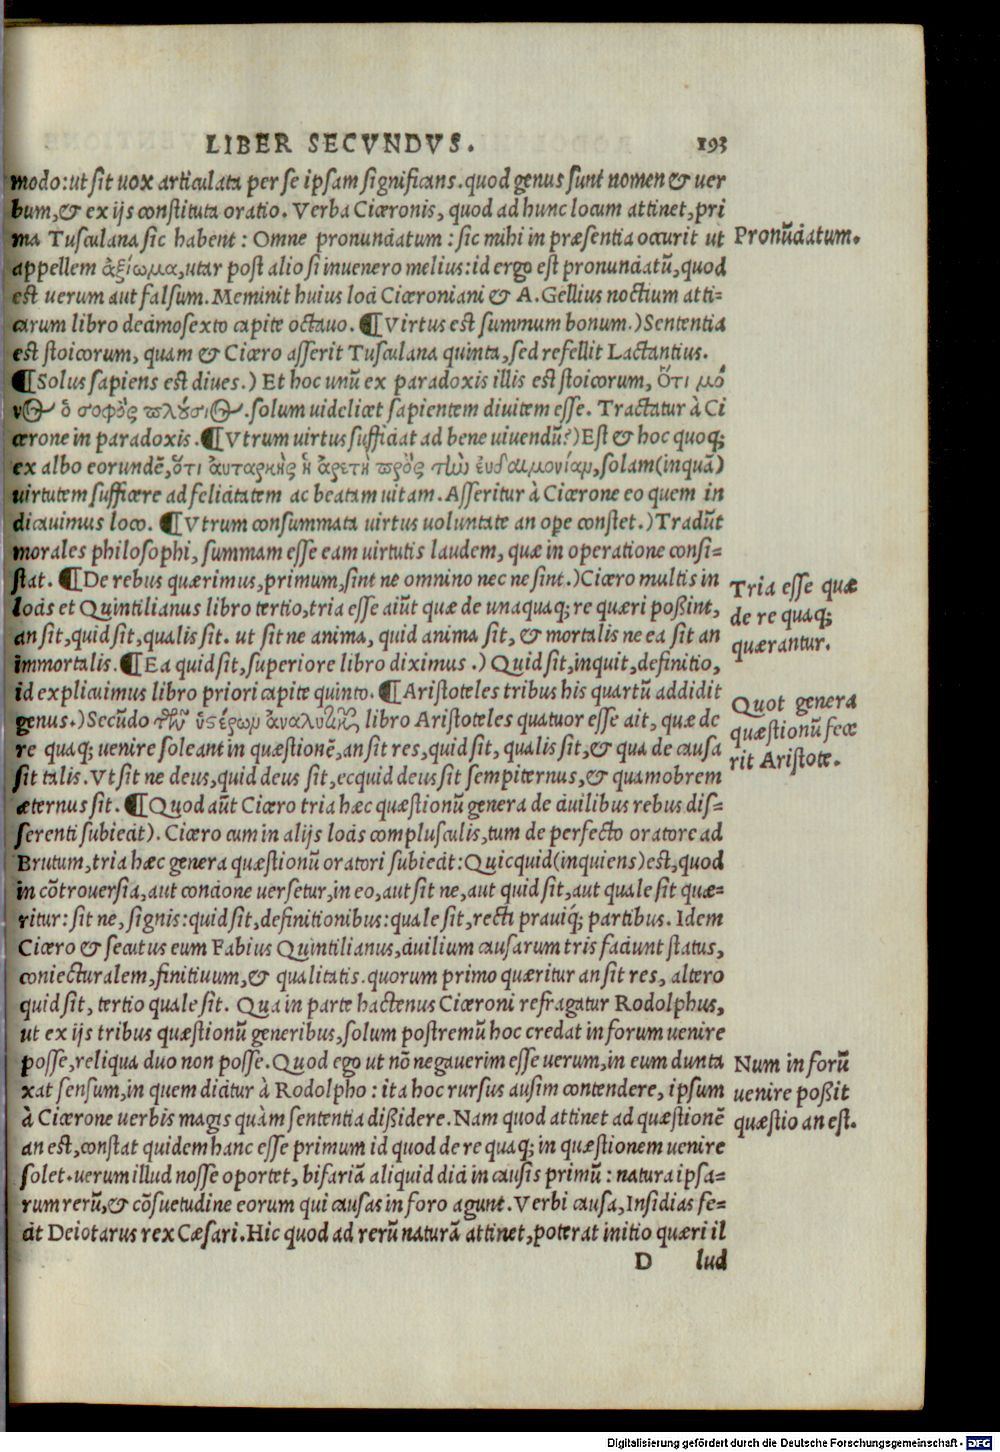 LIBER SECVNDVS. 193
modo: ut sit uox articulata per se ipsam significans. quod genus sunt nomen & uer
bum, & ex ijs constituta oratio. Verba Ciceronis, quod ad hunc locum attinet, pri
ma Tusculana sic habent: Omne pronunciatum: sic mihi in præsentia occurit ut
appellem ἀξίωμα, utar post alio si inuenero melius: id ergo est pronunciatũ, quod
est uerum aut falsum. Meminit huius loci Ciceroniani & A. Gellius noctium atti-
carum libro decimosexto capite octauo. ¶ Virtus est summum bonum.) Sententia
est stoicorum, quam & Cicero asserit Tusculana quinta, sed refellit Lactantius.
¶ Solus sapiens est diues.) Et hoc unũ ex paradoxis illis est stoicorum, ὅτι μό
ν&ος ὁ σοφὸς πλούσι&ος. solum uidelicet sapientem diuitem esse. Tractatur à Ci
cerone in paradoxis. ¶ Vtrum uirtus sufficiat ad bene uiuendũ?) Est & hoc quoq;
ex albo eorundẽ, ὅτι ἀυταρκὴς ἡ ἀρετὴ πρὸς τὼ ἐυδαιμονίαμ, solam (inquã)
uirtutem sufficere ad felicitatem ac beatam uitam. Asseritur à Cicerone eo quem in
dicauimus loco. ¶ Vtrum consummata uirtus uoluntate an ope constet.) Tradũt
morales philosophi, summam esse eam uirtutis laudem, quæ in operatione consi-
stat. ¶ De rebus quærimus, primum, sint ne omnino nec ne sint.) Cicero multis in
locis et Quintilianus libro tertio, tria esse aiũt quæ de unaquaq; re quæri poßint,
an sit, quid sit, qualis sit. ut sit ne anima, quid anima sit, & mortalis ne ea sit an
immortalis. ¶ Ea quid sit, superiore libro diximus.) Quid sit, inquit, definitio,
id explicuimus libro priori capite quinto. ¶ Aristoteles tribus his quartũ addidit
genus.) Secũdo τῶν ὑστέρωμ ἀναλυτικῶν libro Aristoteles quatuor esse ait, quæ de
re quaq; uenire soleant in quæstionẽ, an sit res, quid sit, qualis sit, & qua de causa
sit talis. Vt sit ne deus, quid deus sit, ecquid deus sit sempiternus, & quamobrem
æternus sit. ¶ Quod aũt Cicero tria hæc quæstionũ genera de ciuilibus rebus dis-
serenti subiecit). Cicero cum in alijs locis complusculis, tum de perfecto oratore ad
Brutum, tria hæc genera quæstionũ oratori subiecit: Quicquid (inquiens) est, quod
in cõtrouersia, aut concione uersetur, in eo, aut sit ne, aut quid sit, aut quale sit quæ-
ritur: sit ne, signis: quid sit, definitionibus: quale sit, recti prauiq́; partibus. Idem
Cicero & secutus eum Fabius Quintilianus, ciuilium causarum tris faciunt status,
coniecturalem, finitiuum, & qualitatis. quorum primo quæritur an sit res, altero
quid sit, tertio quale sit. Qua in parte hactenus Ciceroni refragatur Rodolphus,
ut ex ijs tribus quæstionũ generibus, solum postremũ hoc credat in forum uenire
posse, reliqua duo non posse. Quod ego ut nõ negauerim esse uerum, in eum dunta
xat sensum, in quem dicitur à Rodolpho: ita hoc rursus ausim contendere, ipsum
à Cicerone uerbis magis quàm sententia dißidere. Nam quod attinet ad quæstionẽ
an est, constat quidem hanc esse primum id quod de re quaq; in quæstionem uenire
solet. uerum illud nosse oportet, bifariã aliquid dici in causis primũ: natura ipsa-
rum rerũ, & cõsuetudine eorum qui causas in foro agunt. Verbi causa, Insidias fe-
cit Deiotarus rex Cæsari. Hic quod ad rerũ naturã attinet, poterat initio quæri il
D lud
Pronũciatum.
Tria esse quæ
de re quaq;
quærantur.
Quot genera
quæstionũ fece
rit Aristote.
Num in forũ
uenire poßit
quæstio an est.
Digitalisierung gefördert durch die Deutsche Forschungsgemeinschaft - DFG